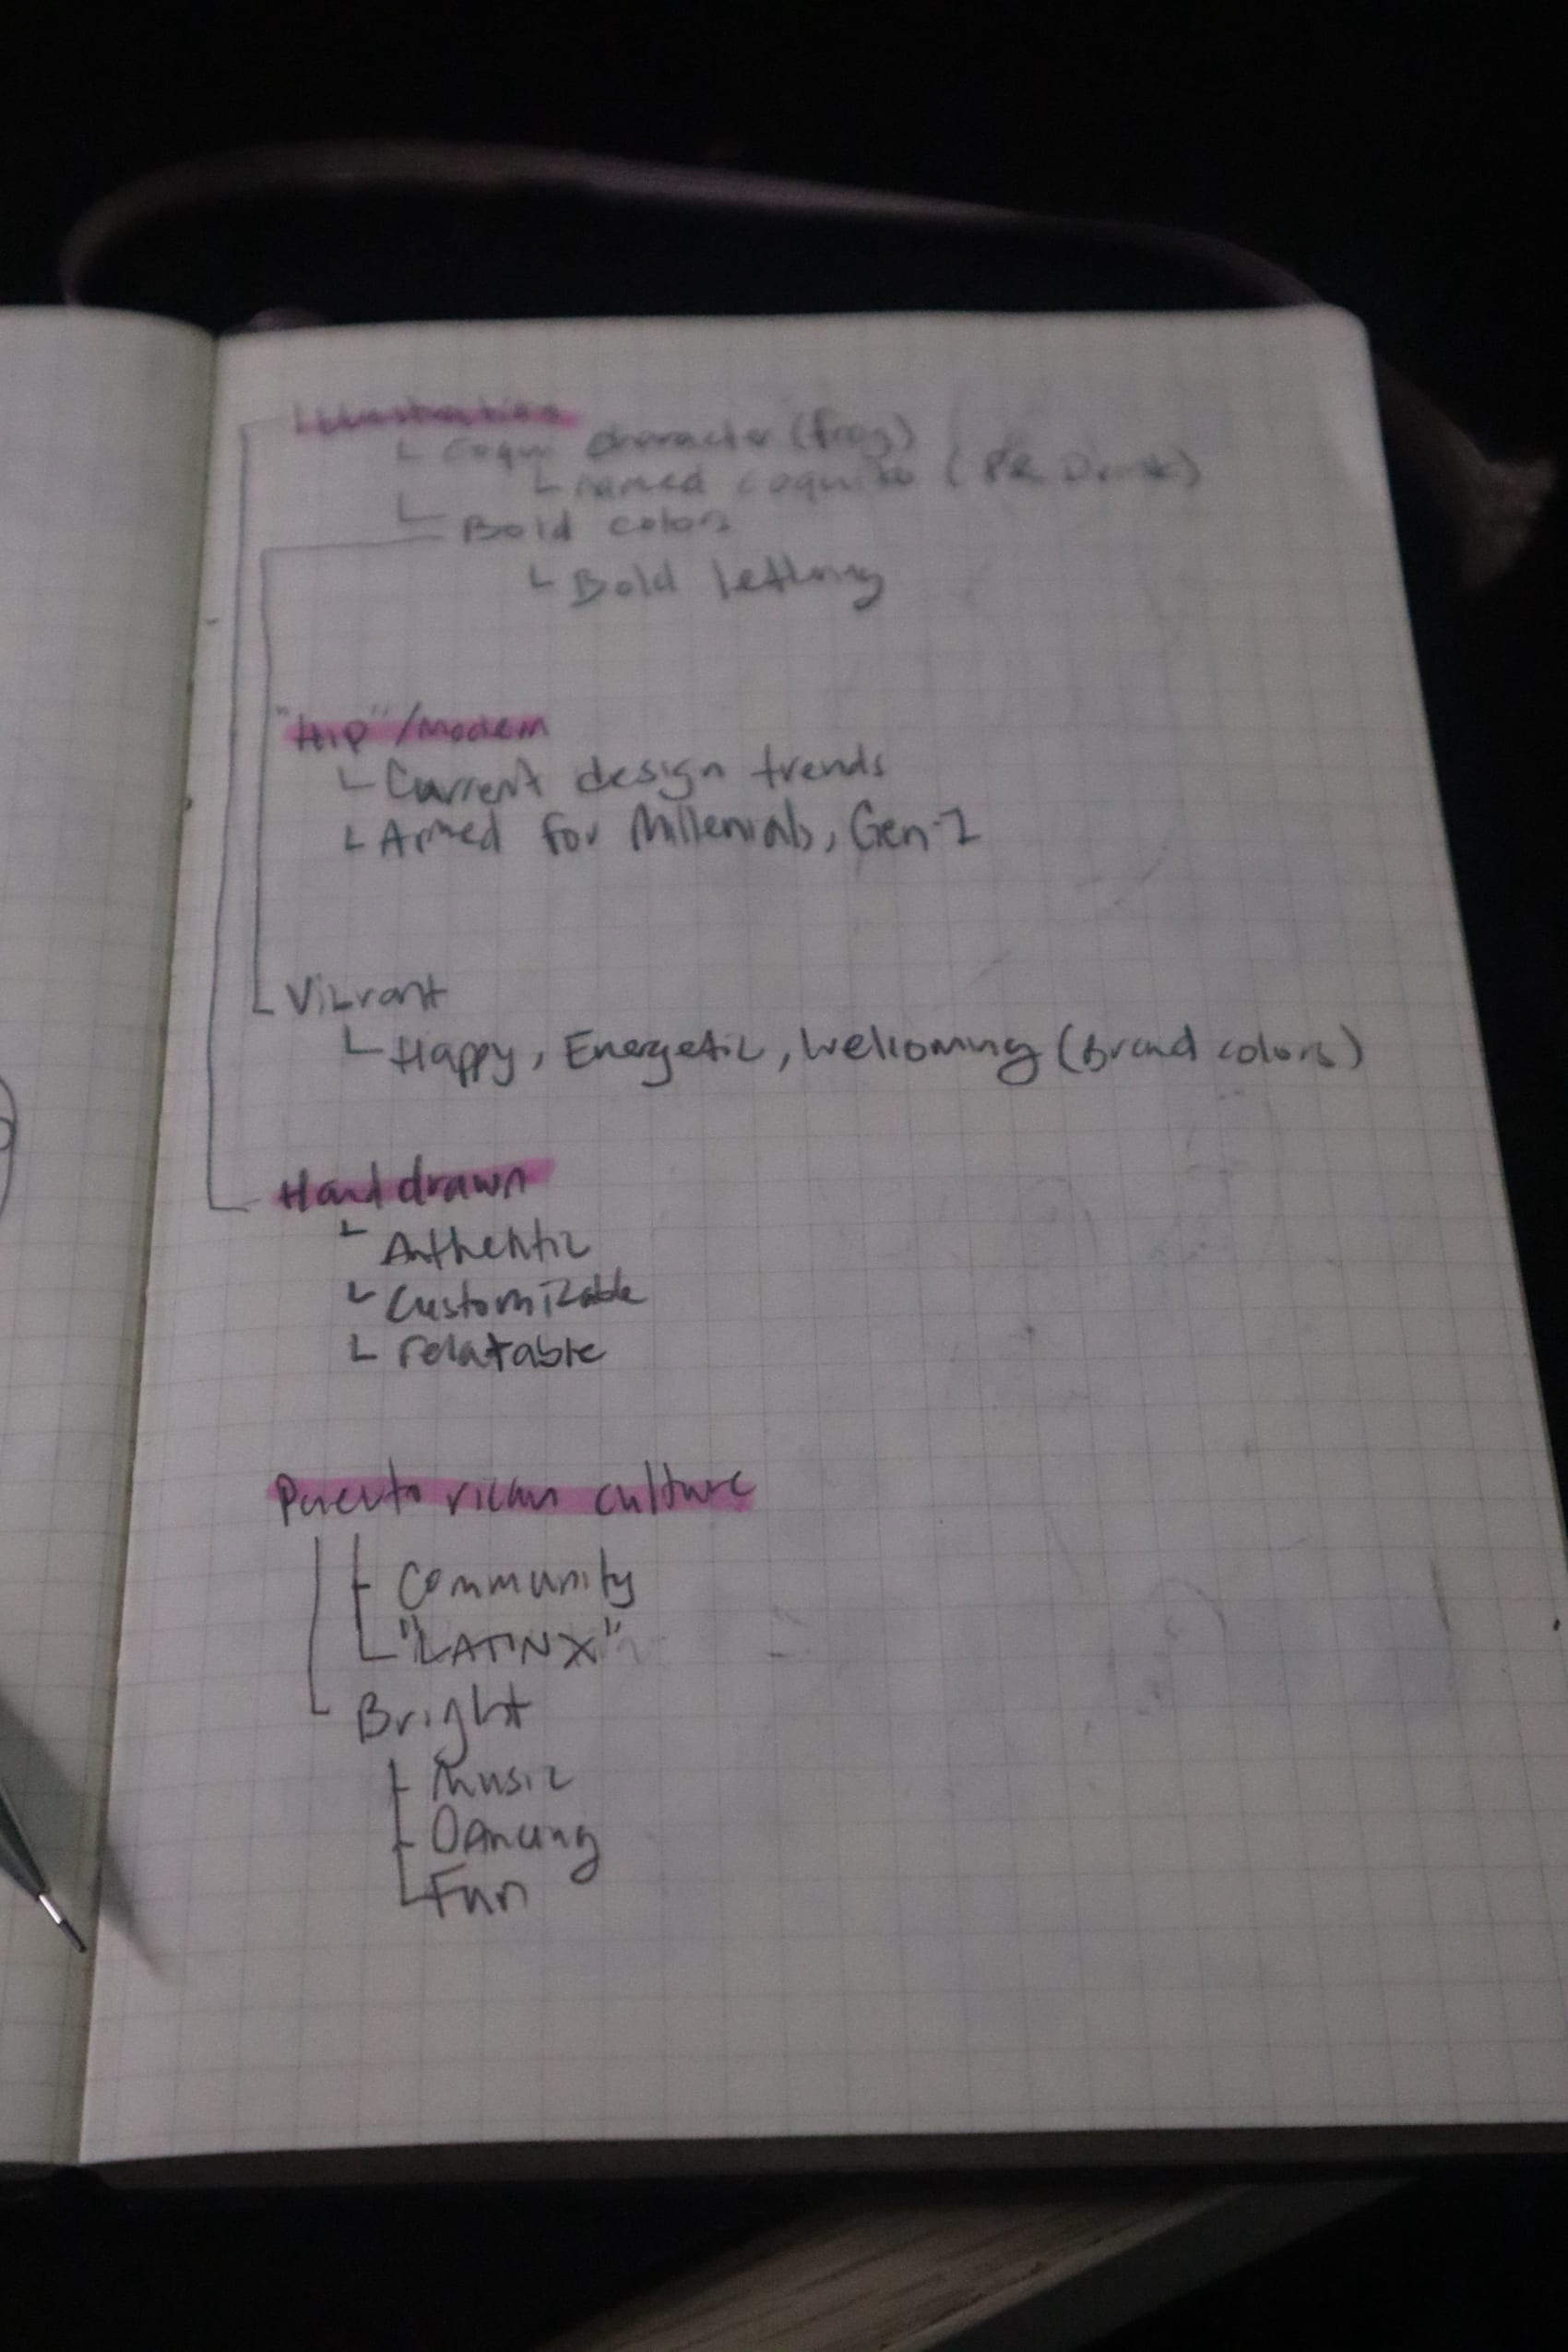 Illustration
Coqui character (frog)
named coquito (PR Drink)
Bold colors
Bold lettering
"Hip"/modern
Current design trends
Aimed for Millenials, Gen-Z
Vibrant
Happy, Energetic, Welcoming (Brand colors)
Hand drawn
Authentic
Customizable
relatable
Puerto rican culture
Community
"LATINX"
Bright
Music
Dancing
Fun